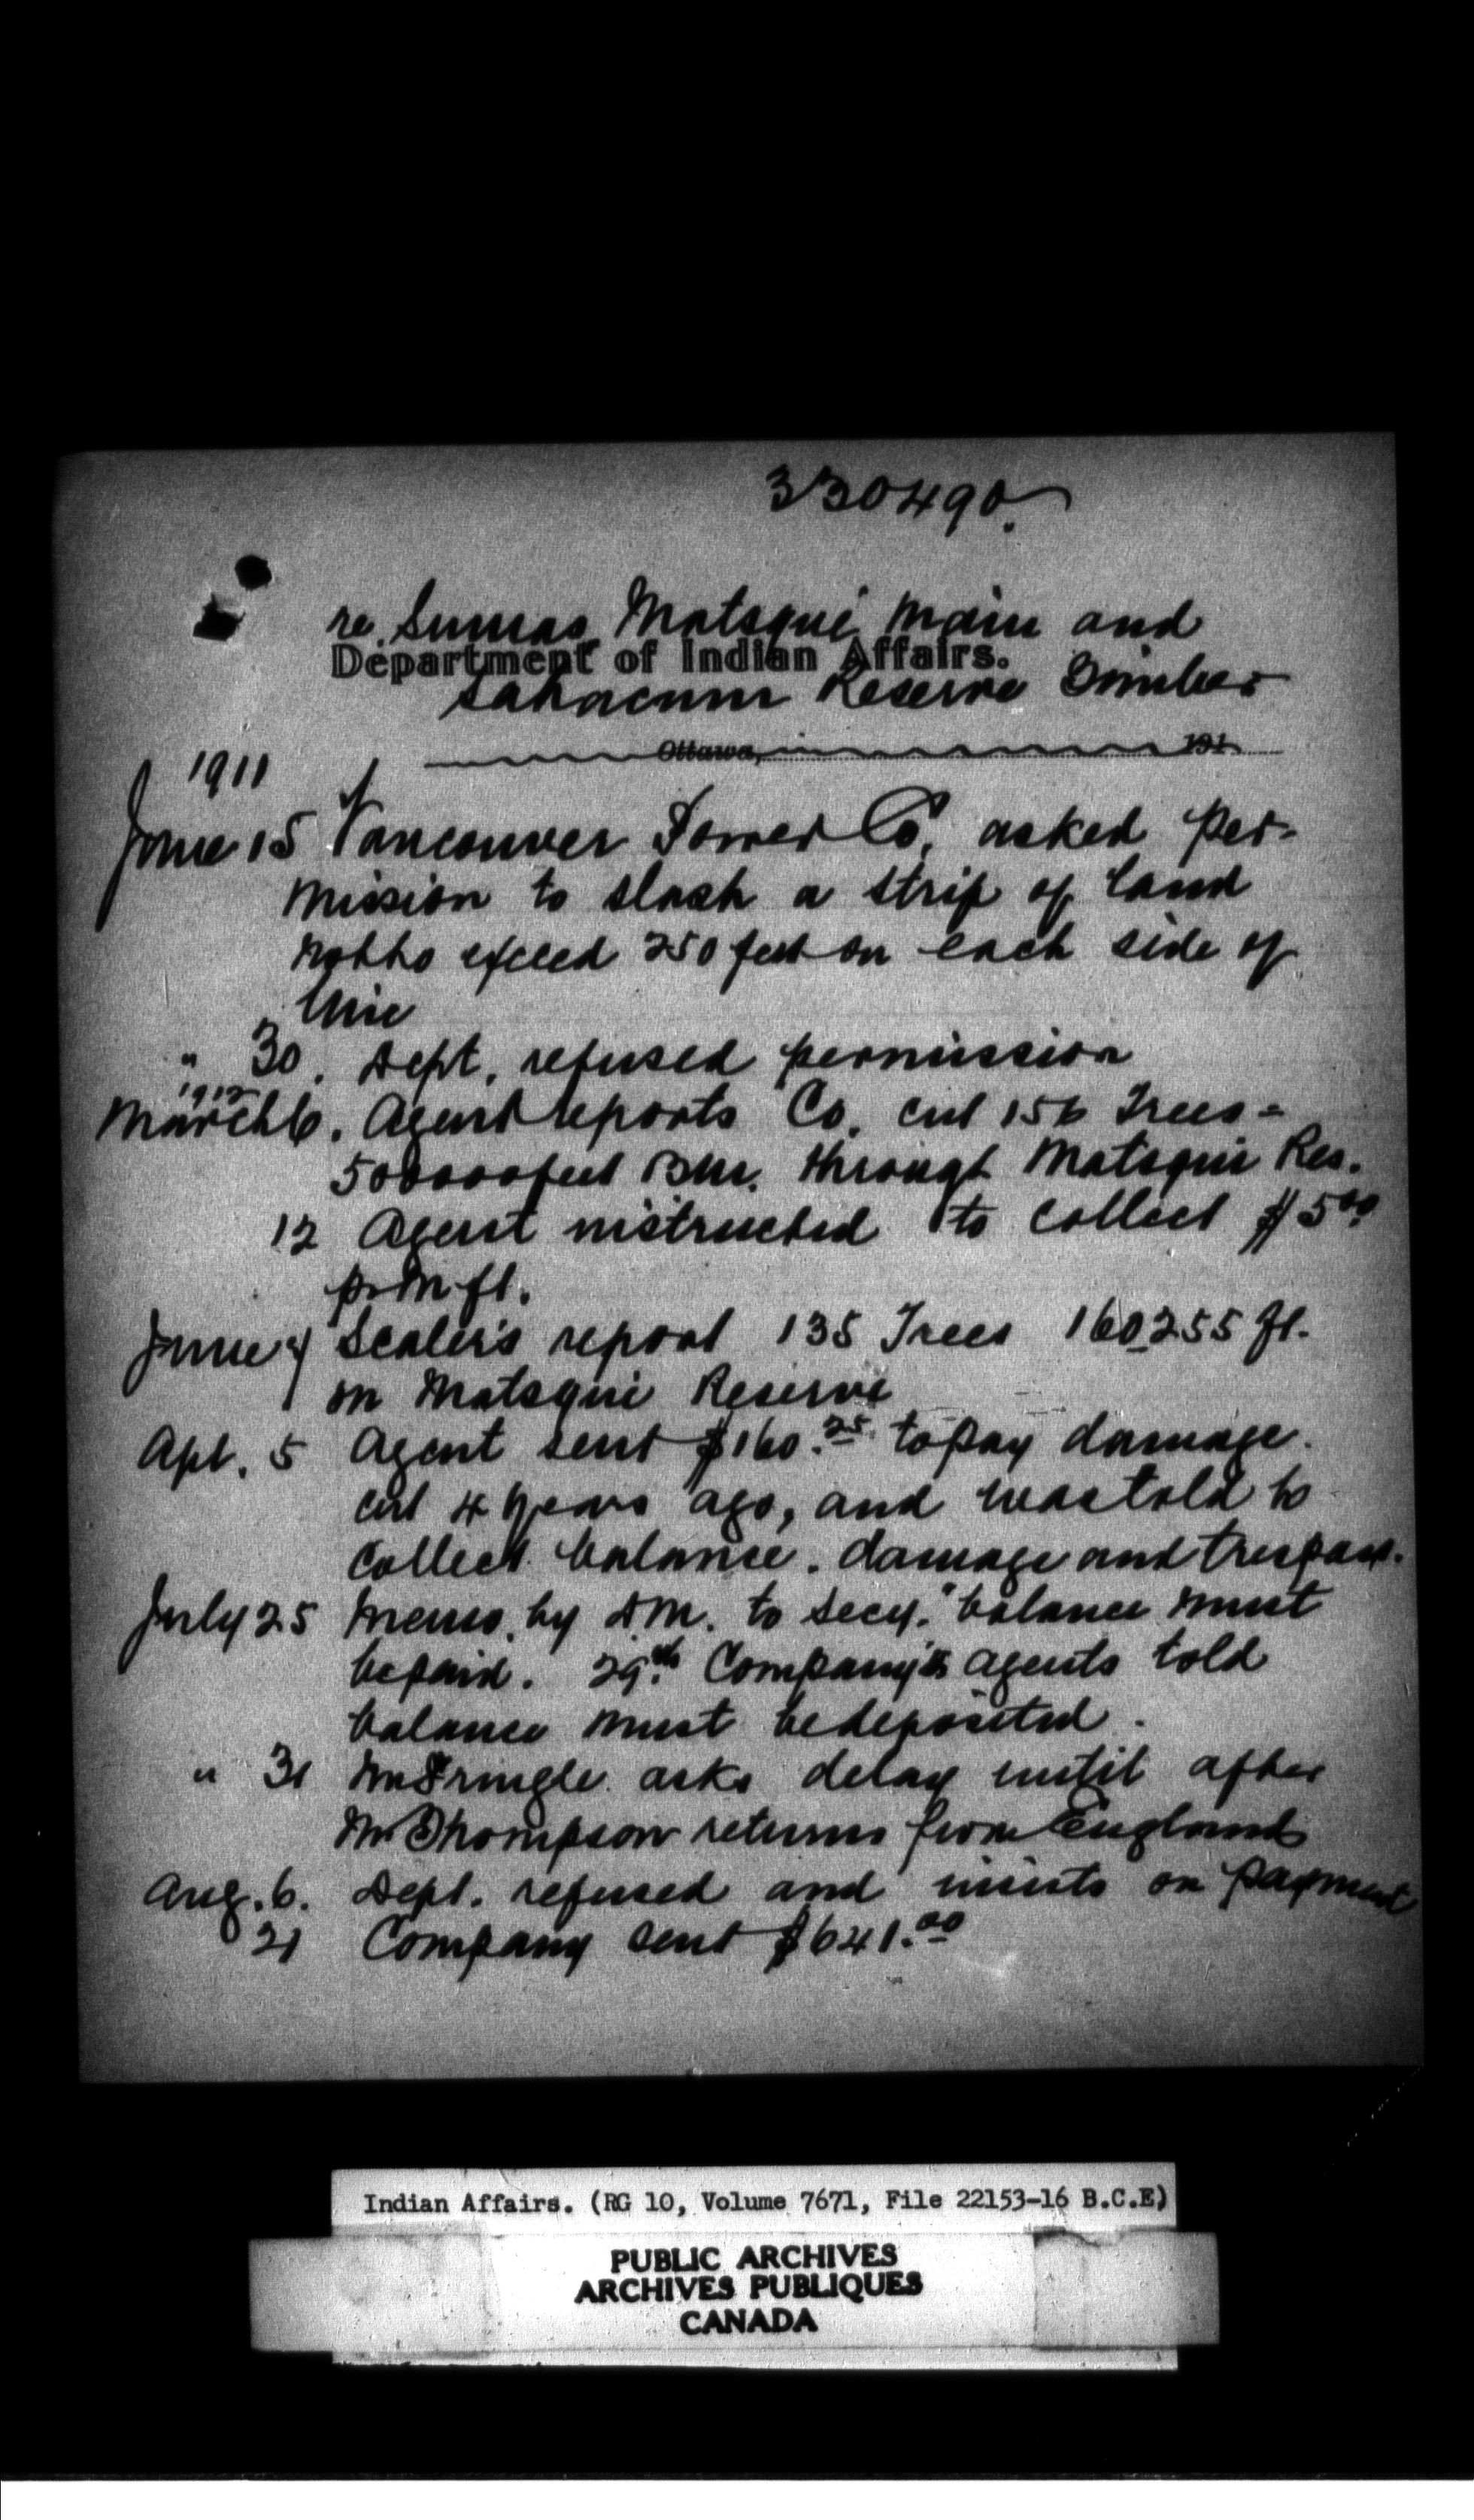 330490.
re. Sumas Matsqui Main and
Department of Indian Affairs.
Sahacum Reserve Timber
Ottawa, 191
1911
June 15 Vancouver Power Co. asked per-
mission to slash a strip of land
not to exceed 250 feet on each side of
line
" 30. Dept. refused permission
1912
March 6. Agent reports Co. cut 156 Trees =
500000 feet B.M. through Matsqui Res.
12 Agent instructed to collect $5.00
pr M ft.
June 4 Scaler's report 135 Trees 160255 ft.
on Matsqui Reserve
Apl. 5 Agent sent $160.25 to pay damage
cut 4 years ago, and was told to
collect balance. damage and trespass.
July 25 Memo. by D.M. to Secy. "balance must
be paid. 29th Company's agents told
balance must be deposited.
" 31 Mr Pringle asks delay until after
Mr Thompson returns from England
Aug. 6. Dept. refused and insists on payment
21 Company sent $641.00
Indian Affairs. (RG 10, Volume 7671, File 22153-16 B.C.E)
PUBLIC ARCHIVES
ARCHIVES PUBLIQUES
CANADA